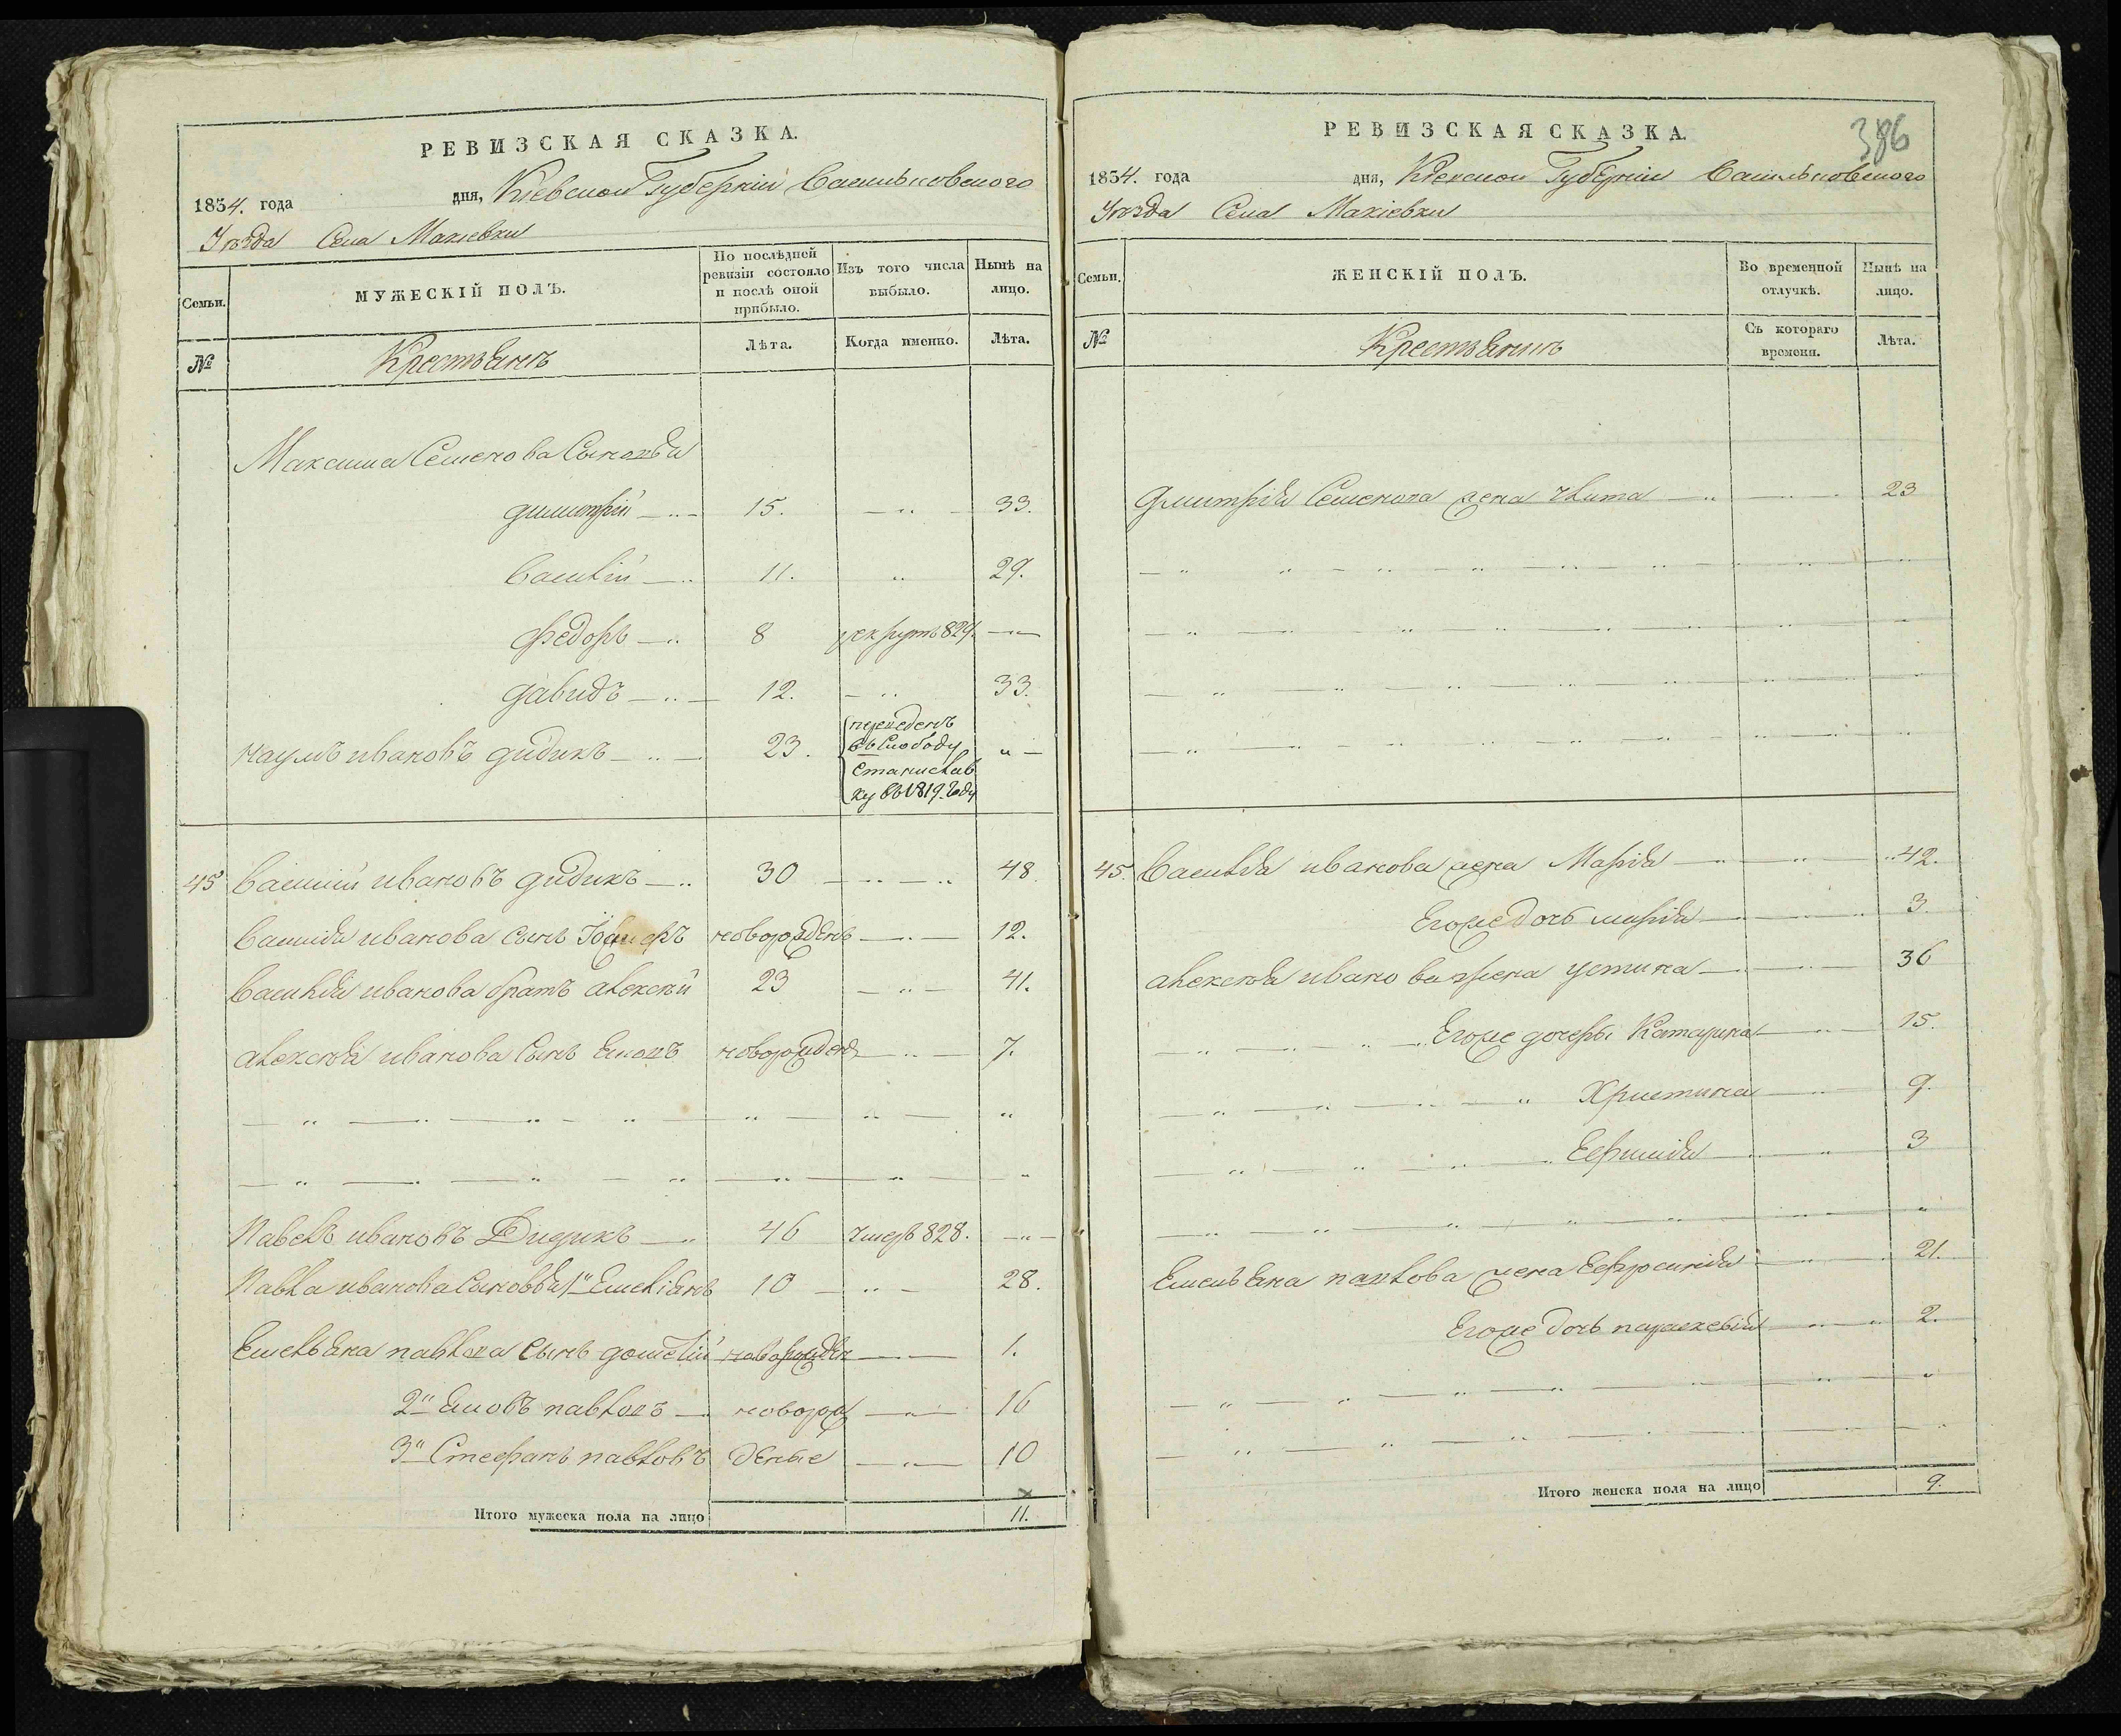 РЕВИЗСКАЯ СКАЗКА.
1834. года дня, Кіевской Губерніи Васильковского
Уѣзда Села Макіевки
Семьи.
МУЖЕСКІЙ ПОЛЪ.
По послѣдней ревизіи состояло и послѣ оной прибыло.
Изъ того числа выбыло.
Нынѣ на лицо.
№
Крестьянъ
Лѣта.
Когда именно.
Лѣта.
Максима Семенова Сыновья
димитрій 15. 33.
Василій 11. 29.
федоръ 8 рекрутъ 829.
давидъ 12. 33.
наумъ ивановъ дидикъ 23.
переведенъ
въ Слободу
Станислав
ку въ 1819. году
45 Василій ивановъ дидикъ 30 48
Василія иванова сынъ новорожденъ 12.
Василія иванова братъ алексѣй 23 41.
алексѣя иванова Сынъ новорожденъ 7.
Павелъ ивановъ Дидикъ 46 умеръ 828.
Павла иванова Сыновья 1й Емеліянъ 10 28.
Емельяна павлова Сынъ новорожден 1.
2й павловъ новорож 16
3й Стефанъ павловъ деные 10
Итого мужеска пола на лицо 11.
386
РЕВИЗСКАЯ СКАЗКА.
1834. года дня, Кіевской Губерніи Васильковского
Уѣзда Села Макіевки
Семьи.
ЖЕНСКІЙ ПОЛЪ.
Во временной отлучкѣ.
Нынѣ на лицо.
№
Крестьянинъ
Съ котораго времени.
Лѣта.
Дмитрія Семенова жена улита 23
45. Василія иванова жена Марія 42.
Егоже дочь марія 3.
алексѣя иванова жена устина 36
Егоже дочеры Катарина 15.
Христина 9.
3
Емельяна павлова жена Ефросинія 21.
Егоже дочь параскевія 2.
Итого женска пола на лицо 9.